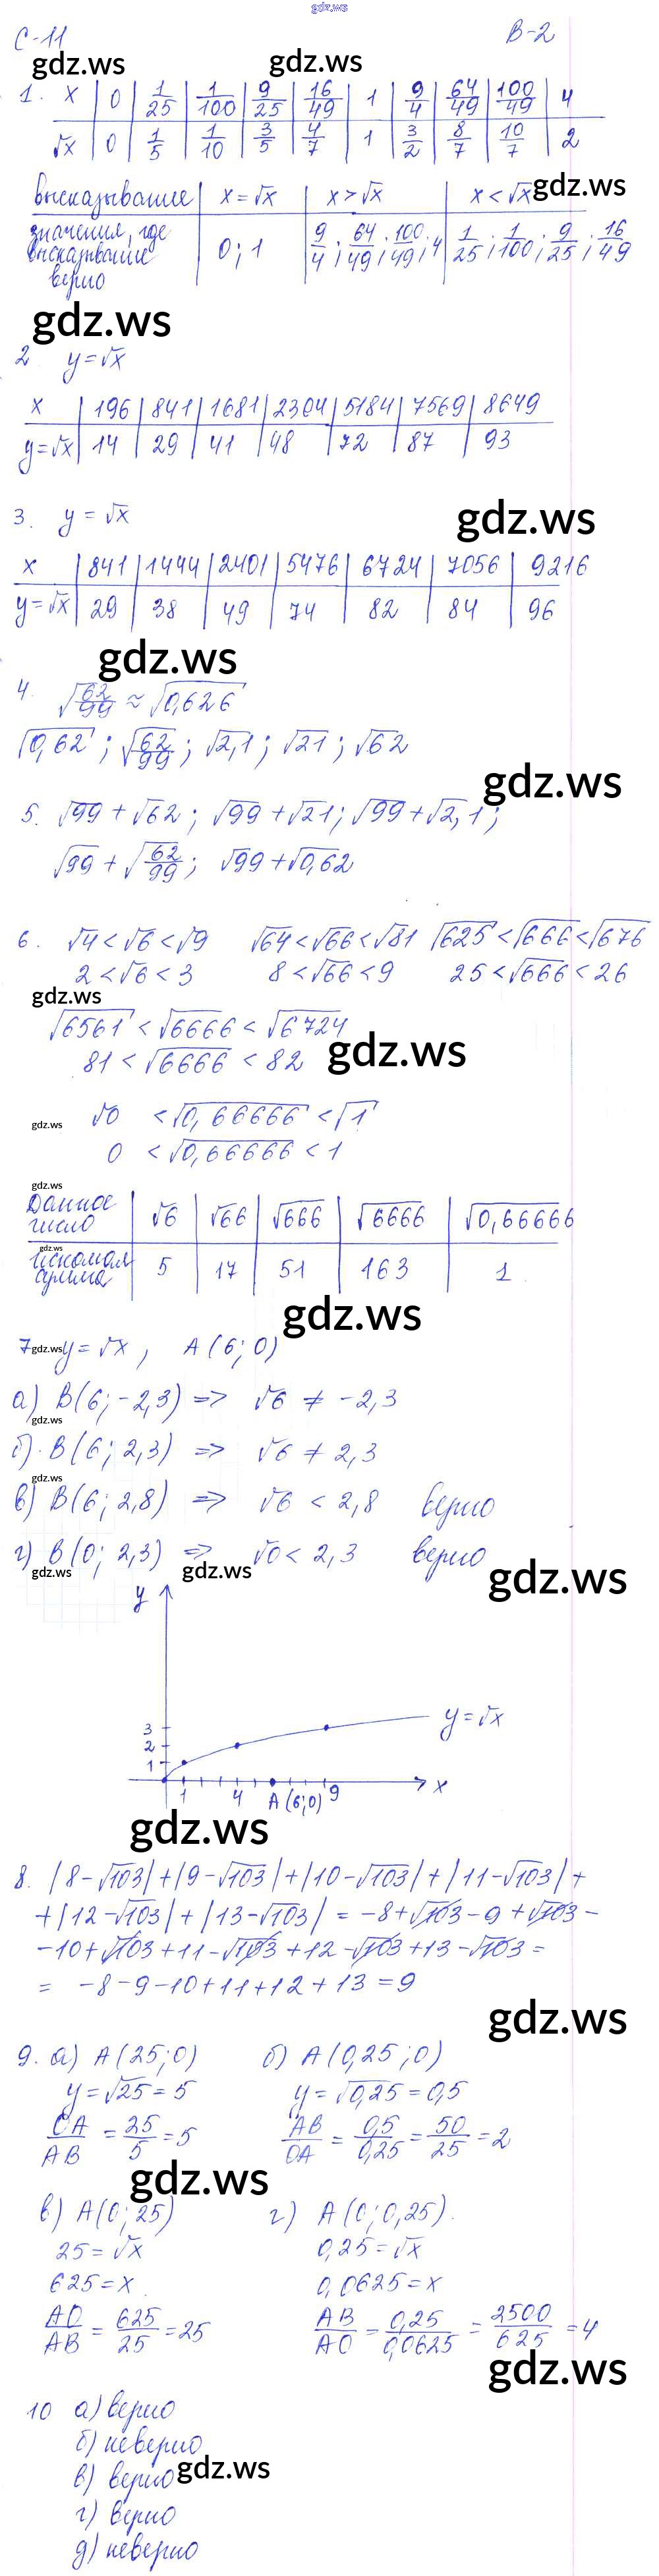 gdz.ws
С-11 В-2
gdz.ws gdz.ws
1. x | 0 | 1/25 | 1/100 | 9/25 | 16/49 | 1 | 9/4 | 64/49 | 100/49 | 4
√x | 0 | 1/5 | 1/10 | 3/5 | 4/7 | 1 | 3/2 | 8/7 | 10/7 | 2
высказывание | x=√x | x>√x | x<√x gdz.ws
значения, где высказывание верно | 0; 1 | 9/4; 64/49; 100/49; 4 | 1/25; 1/100; 9/25; 16/49
gdz.ws
2 y=√x
x | 196 | 841 | 1681 | 2304 | 5184 | 7569 | 8649
y=√x | 14 | 29 | 41 | 48 | 72 | 87 | 93
gdz.ws
3. y = √x
x | 841 | 1444 | 2401 | 5476 | 6724 | 7056 | 9216
y=√x | 29 | 38 | 49 | 74 | 82 | 84 | 96
gdz.ws
4. √(62/99) ≈ √0,626
√0,62; √(62/99); √2,1; √21; √62
gdz.ws
5. √99 + √62; √99 + √21; √99 + √2,1;
√99 + √(62/99); √99 + √0,62
6. √4 < √6 < √9 √64 < √66 < √81 √625 < √666 < √676
2 < √6 < 3 8 < √66 < 9 25 < √666 < 26
gdz.ws
√6561 < √6666 < √6724
81 < √6666 < 82 gdz.ws
gdz.ws √0 < √0,66666 < √1
0 < √0,66666 < 1
gdz.ws
Данное число | √6 | √66 | √666 | √6666 | √0,66666
gdz.ws
искомая сумма | 5 | 17 | 51 | 163 | 1
gdz.ws
7 gdz.ws y = √x, A (6; 0)
а) B(6; -2,3) => √6 ≠ -2,3
gdz.ws
б). B(6; 2,3) => √6 ≠ 2,3
gdz.ws
в) B(6; 2,8) => √6 < 2,8 верно
г) B(0; 2,3) => √0 < 2,3 верно
gdz.ws gdz.ws gdz.ws
y
3
2
1
y=√x
1 4 A (6;0) 9 x
gdz.ws
8. |8-√103|+|9-√103|+|10-√103|+|11-√103|+
+|12-√103|+|13-√103| = -8+√103-9+√103-
-10+√103+11-√103+12-√103+13-√103=
= -8-9-10+11+12+13=9
gdz.ws
9. а) A(25;0) б) A(0,25;0)
y=√25=5 y=√0,25=0,5
OA/AB = 25/5 = 5 AB/OA = 0,5/0,25 = 50/25 = 2
gdz.ws
в) A(0; 25) г) A(0; 0,25).
25=√x 0,25=√x
625=x. 0,0625=x
AO/AB = 625/25 = 25 AB/AO = 0,25/0,0625 = 2500/625 = 4
gdz.ws
10 а) верно
б) неверно
в) верно gdz.ws
г) верно
д) неверно